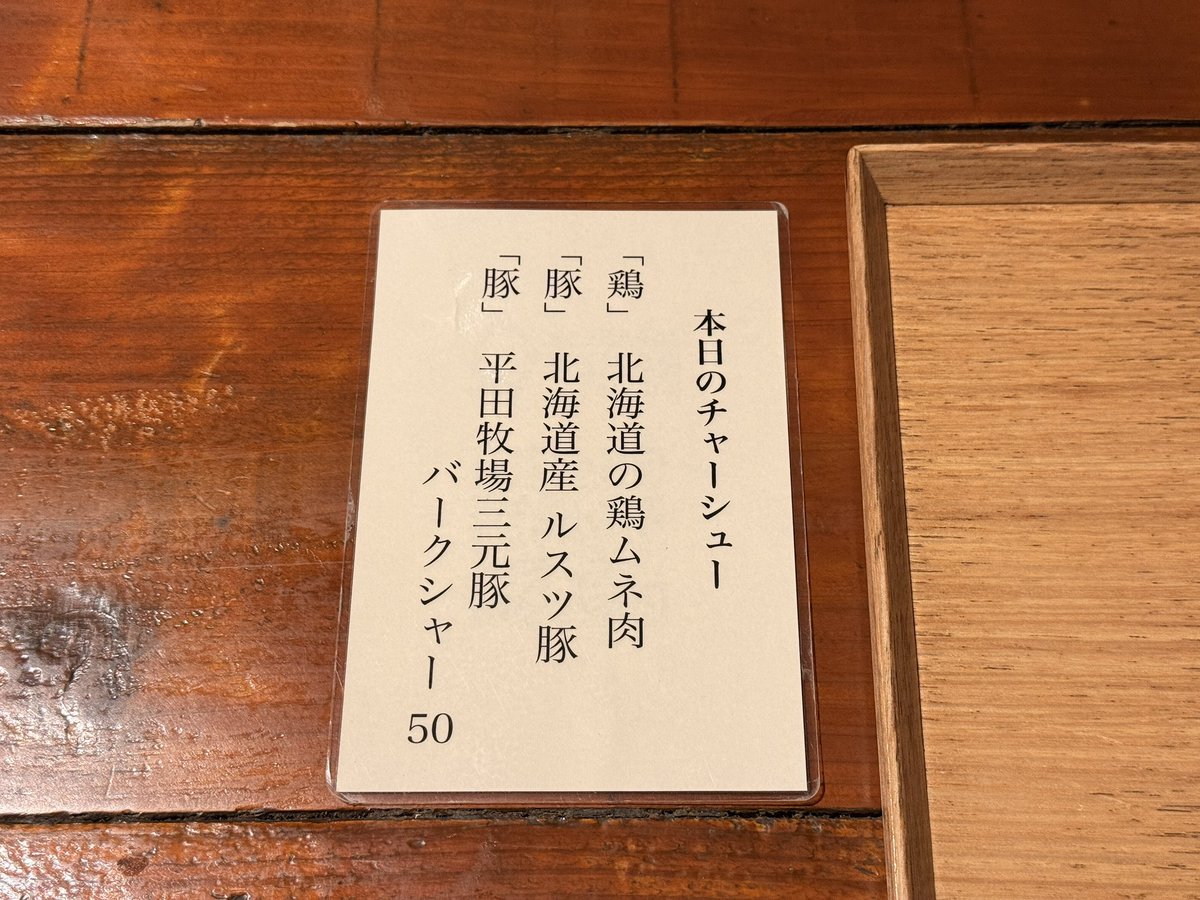 本日のチャーシュー
「鶏」 北海道の鶏ムネ肉
「豚」 北海道産 ルスツ豚
「豚」 平田牧場三元豚
バークシャー 50